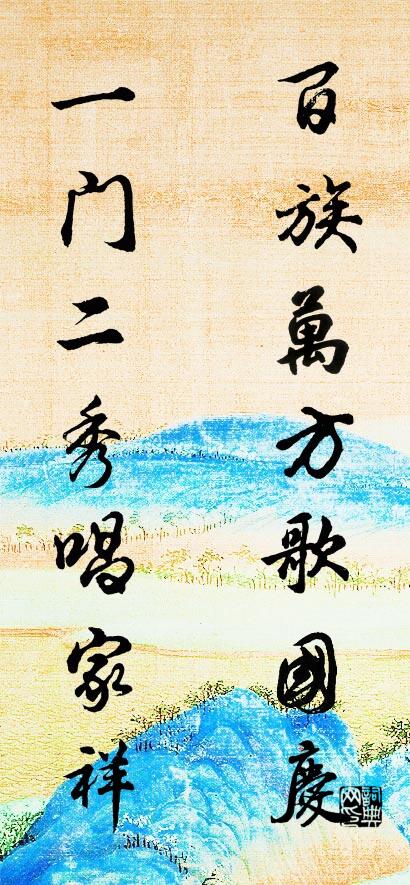 百族萬方歌國慶
一门二秀唱家祥